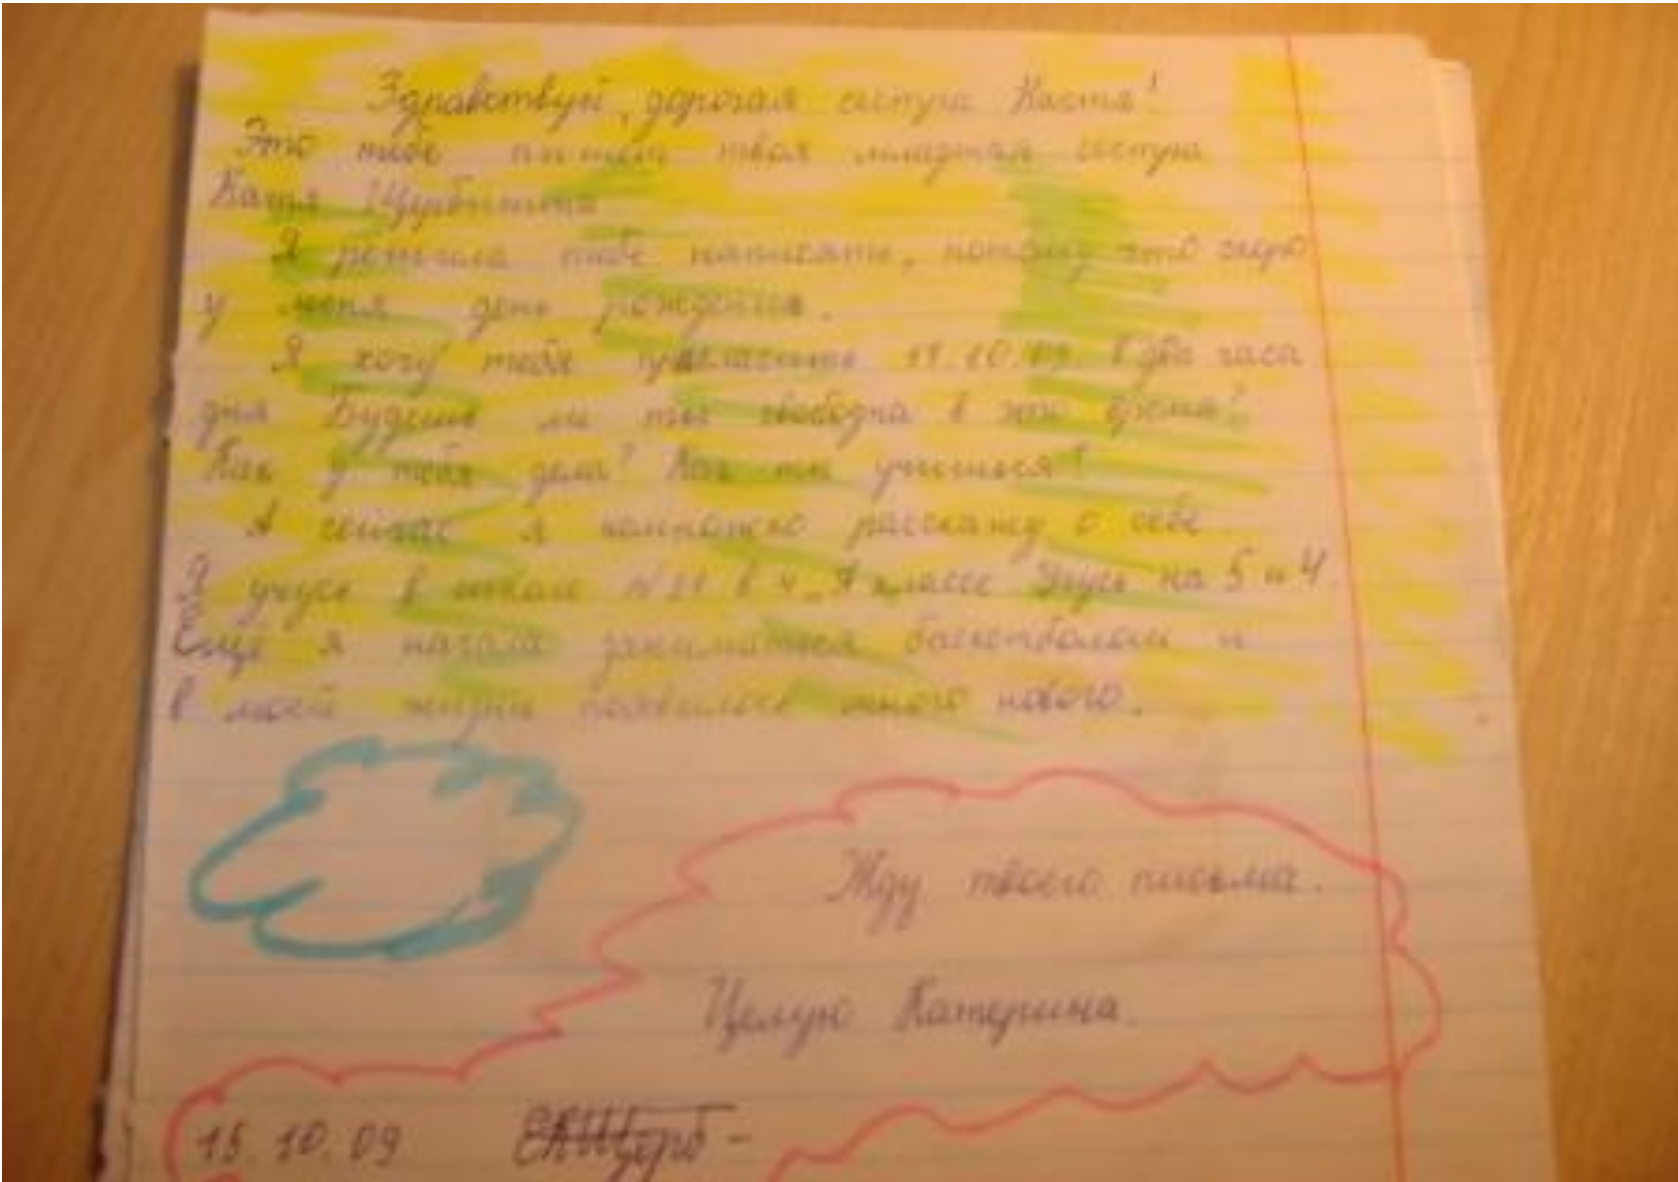 Здравствуй, дорогая сестра Настя!
Это тебе пишет твоя младшая сестра
Катя Щербинина
Я решила тебе написать, потому что скоро
у меня день рождения.
Я хочу тебя пригласить 19.10.09. В два часа
дня Будешь ли ты свободна в это время?
Как у тебя дела? Как ты учишься?
А сейчас я немножко расскажу о себе
Я учусь в школе №21 в 4 „А классе Учусь на 5 и 4
Ещё я начала заниматься баскетболом и
в моей жизни появилось много нового.
Жду твоего письма.
Целую Катерина.
15.10.09